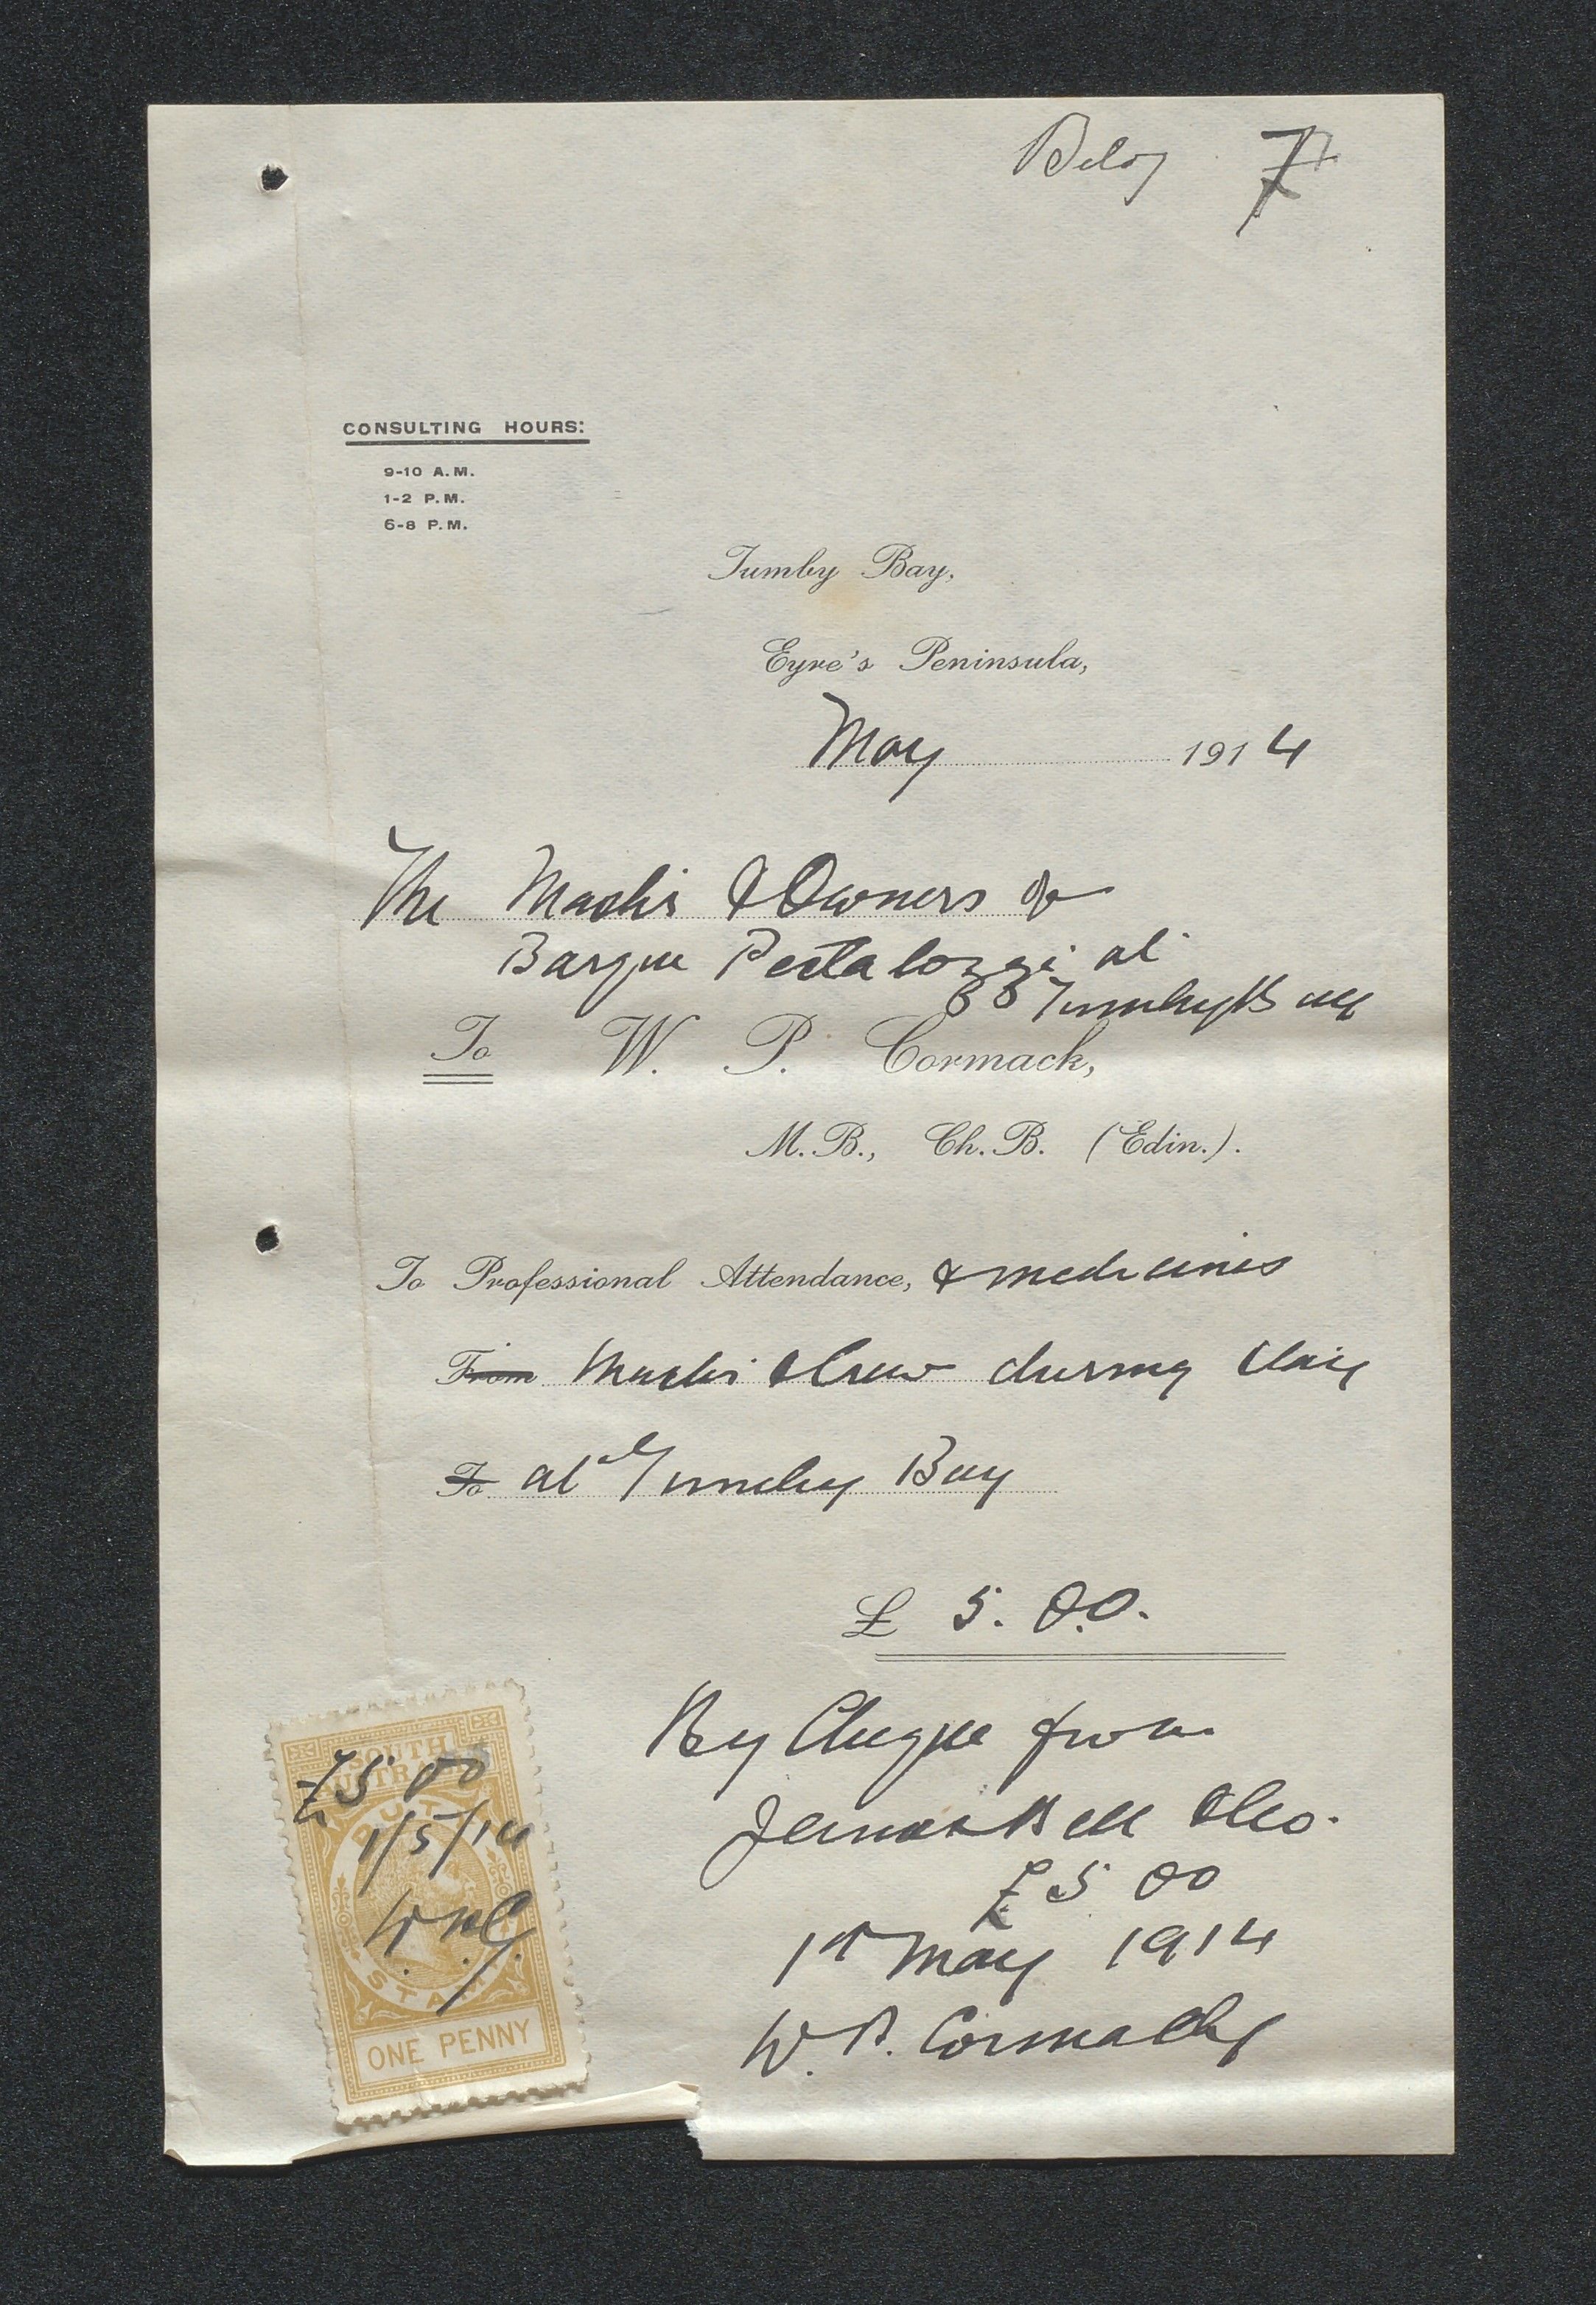 Belag 7
CONSULTING HOURS:
9-10 A.M.
1-2 P.M.
6-8 P.M.
Tumby Bay,
Eyre's Peninsula,
May 1914
The Master & Owners of
Barque Pestalozzi at
Tumby Bay
To W. P. Cormack,
M.B., Ch.B. (Edin.).
To Professional Attendance, & medicines
From Master & Crew during stay
To at Tumby Bay
£ 5. 0.0.
By Cheque from
Bell & Co.
£5 00
1st May 1914
W. P. Cormack
SOUTH
AUSTRALIA
DUTY
STAMP
ONE PENNY
£5 00
1/5/14
W.P.C.